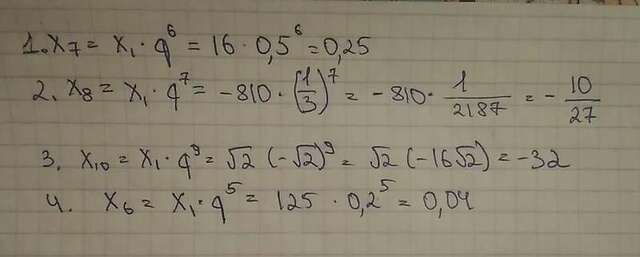 1. x₇ = x₁ · q⁶ = 16 · 0,5⁶ = 0,25
2. x₈ = x₁ · q⁷ = -810 · (1/3)⁷ = -810 · 1/2187 = - 10/27
3. x₁₀ = x₁ · q⁹ = √2 (-√2)⁹ = √2 (-16√2) = -32
4. x₆ = x₁ · q⁵ = 125 · 0,2⁵ = 0,04